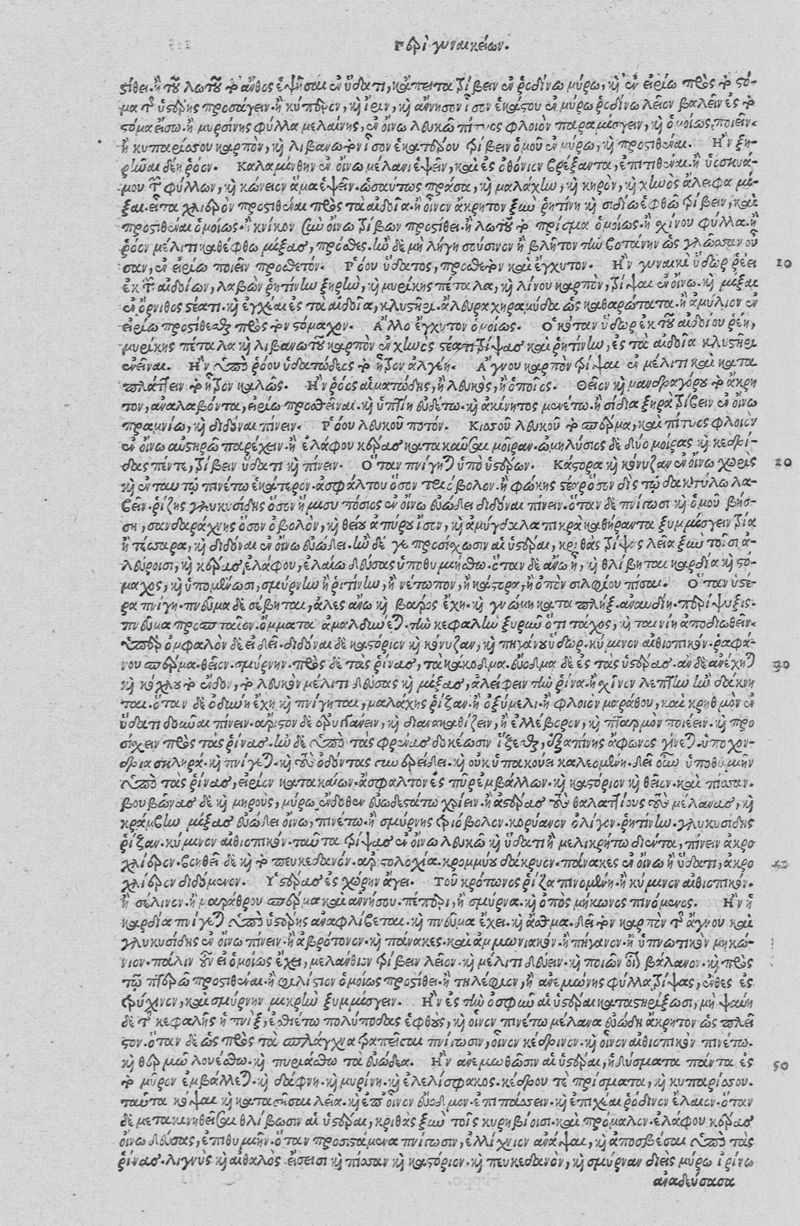 Περὶ γυναικείων.
στίθει. ἢ τοῦ λωτοῦ τὸ ἄνθος ἑψῆσαι ἐν ὕδατι, κἄπειτα τρίβειν ἐν ῥοδίνῳ μύρῳ, καὶ ἐν εἰρίῳ πρὸς τὸ στό-
μα τῆς ὑστέρης προσάγειν. ἢ κύπερον, καὶ ἶριν, καὶ ἄννησον ἴσον ἑκάστου ἐν μύρῳ ῥοδίνῳ λεῖον βαλεῖν ἐς τὸ
στόμα εἴσω. ἢ μυρσίνης φύλλα μελαίνης, ἐν οἴνῳ λευκῷ πίτυος φλοιὸν παραμάσγειν, καὶ ὁμοίως ποιεῖν.
ἢ κυπαρίσσου καρπὸν, καὶ λιβανωτὸν ἴσον ἑκάστου τρίβειν ὁμοῦ ἐν μύρῳ, καὶ προστιθέναι. Ἢν ξη-
ρῆναι δέῃ ῥόον. Καλαμίνθην ἐν οἴνῳ μέλανι ἑψεῖν, καὶ ἐς ὀθόνιον βρέξαντα, ἐπιτιθέναι. ἢ ὑοσκυά-
μου τῶν φύλλων, καὶ κώνειον ἅμα ἑψεῖν. ὡσαύτως πράσα, καὶ μαλάχην, καὶ κηρὸν, καὶ χηνὸς ἄλειφα μί-
ξαι. εἶτα χλιερὸν προστιθέναι πρὸς τὰ αἰδοῖα. ἢ οἶνον ἄκρητον ξὺν ῥητίνῃ καὶ σιδίῳ ἑφθῷ τρίβειν, καὶ
προστιθέναι ὁμοίως. ἢ κνίκον σὺν οἴνῳ τρίβων προστίθει. ἢ λωτοῦ τὸ πρίσμα ὁμοίως. ἢ σχίνου φύλλα. ἢ
ῥόον μέλιτι καθέφθῳ μίξας, πρόσθες. ἢν δὲ μὴ λήγῃ στύσινον ἢ βλῆτον τὴν βοτάνην ὡς γλῶσσαν οὖ
σαν, ἐν εἰρίῳ ποιεῖν προσθετόν. Ῥόου ὕδατος, προσθετὸν καὶ ἔγχυτον. Ἢν γυναικὶ ὕδωρ ῥέει 10
ἐκ τῶν αἰδοίων, λαβὼν ῥητίνην ξηρὴν, καὶ μυρίκης πέταλα, καὶ λίνου καρπὸν, τρίψαι ἐν οἴνῳ. καὶ μίξαι
ἐν ὄρνιθος στέατι. καὶ ἐγχέαι ἐς τὰ αἰδοῖα, κλυστῆρι. ἄλευρα χηραμύσδα ὡς καθαρώτατα. ἢ ἀμύλιον ἐν
εἰρίῳ προστίθεσθαι πρὸς τὸν στόμαχον. Ἄλλο ἔγχυτον ὁμοίως. Ὁκόταν ὕδωρ ἐκ τοῦ αἰδοίου ῥέῃ,
μυρίκης πέταλα καὶ λιβανωτοῦ καρπὸν ἐν χηνὸς στέατι τρίψας καὶ ῥητίνην, ἐς τὰ αἰδοῖα κλυστῆρι
ἐνεῖναι. Ἢν ὑπὸ ῥόου ὑδατώδεος τὸ ἦτρον ἀλγέῃ. Ἄγνου καρπὸν τρίψαι ἐν μέλιτι καὶ κατα
πλάττειν τὸ ἦτρον καλῶς. Ἢν ῥόος αἱματώδης, ἢ λευκὸς, ἢ ὁποῖος. Θεῖον καὶ μανδραγόρου τὸ ἀρκῆ
τον, ἀναλαβόντα, εἰρίῳ προσθεῖναι. καὶ ὑπτίη εὑδέτω. καὶ ἀκίνητος μενέτω. ἢ σίδια ξηρὰ τρίβειν ἐν οἴνῳ
πραμνίῳ, καὶ διδόναι πίνειν. Ῥόου λευκοῦ ποτόν. Κισσοῦ λευκοῦ τὸ σπέρμα, καὶ πίτυος φλοιὸν
ἐν οἴνῳ αὐστηρῷ παρέχειν. ἢ ἐλάφου κέρας κατακαῦσαι μοῖραν. ὠμηλύσιος δὲ δύο μοίρας καὶ κεδρί-
δας πέντε, τρίβειν ὕδατι καὶ πίνειν. Ὅταν πνίγηται ὑπὸ ὑστέρων. Κάστορα καὶ κόνυζαν ἐν οἴνῳ χωρὶς 20
καὶ ἐν ταυτῷ πινέτω ἑκάτερον. ἀσφάλτου ὅσον τριώβολον. ἢ φώκης στέαρ ὅσον δὶς τῷ δακτύλῳ λα-
βεῖν. ῥίζης γλυκυσίδης ὅσον ἥμισυ πόσιος ἐν οἴνῳ εὐώδει διδόναι πίνειν. ὅταν δὲ πνίγωσι καὶ ὁμοῦ βήσ-
σῃ, σανδαράχης ὅσον ὀβολὸν, καὶ θείου ἀπύρου ἴσον, καὶ ἀμύγδαλα πικρὰ καθήραντα ξυμμίσγειν τρία
ἢ τέσσαρα, καὶ διδόναι ἐν οἴνῳ εὐώδει. ἢν δέ γε προσίσχωσιν αἱ ὑστέραι, κριθὰς τρίψας λείας ξὺν τοῖσι ἀ-
λεύροισι, καὶ κέρας ἐλάφου, ἐλαίῳ δεύσας ὑποθυμιήσθω. ὅταν δὲ ἄνω ᾖ, καὶ θλίβηται καρδίη καὶ στό-
μαχος, καὶ ὑπομένωσι, σμύρνην ἢ ῥητίνην, ἢ νέτωπον, ἢ κάστορα, ἢ ὀπὸν σιλφίου πῖσαι. Ὅταν ὑστέ-
ρα πνίγῃ. πνεῦμα δὲ σέβηται, ἅλες ἄνω καὶ βάρος ἔχῃ. καὶ γνώμη καταπλήξ. ἀναυδίη. περίψυξις.
πνεῦμα προσπταῖον. ὄμματα ἀμαλδύνεται. τὴν κεφαλὴν ξυρεῖν ὅτι τάχος, καὶ ταινίῃ ἀποδιωθεῖν.
ὑπὲρ ὀμφαλὸν δὲ εἰλεῖ. διδόναι δὲ καστόριον καὶ κόνυζαν, καὶ πηγάνου ὕδωρ. κύμινον αἰθιοπικόν. ῥαφά-
νου σπέρμα. θεῖον. σμύρνην. πρὸς δὲ τὰς ῥῖνας, τὰ κάκοδμα. εὔοδμα δὲ ἐς τὰς ὑστέρας. 30
τὸ λευκὸν μέλιτι δεύσας καὶ μίξας, ἀλείφειν τὴν ῥῖνα. ἢ ἐχῖνον λεπτὸν ἢν δάκνη
ται. ὅταν δὲ ὀδύνη ἔχῃ καὶ πνίγηται, μαλάχης ῥίζαν. ἢ ὀξύμελι. ἢ φλοιὸν μαράθου, καὶ κρηθμὸν ἐν
ὕδατι δοῦναι πίνειν. ἄριστον δὲ ὀρυγγάνειν, καὶ διαιακαθίζειν, ἢ ἐλλέβορον, καὶ πταρμὸν ποιέειν. καὶ προ
σίσχειν πρὸς τὰς ῥῖνας. ἢν δὲ ὑπὸ τὰς φρένας δοκέωσιν ἵζεσθαι, ἐξαπίνης ἄφωνος γίνεται. ὑποχόν-
δρια σκληρά. καὶ πνίγεται. καὶ τοὺς ὀδόντας συνερείδει. καὶ οὐκ ὑπακούει καλεομένη. δεῖ οὖν ὑποθυμιῆν
ὑπὸ τὰς ῥῖνας, εἰρίον κατακαίων. ἄσφαλτον ἐς πῦρ ἐμβάλλων. καὶ καστόριον καὶ θεῖον. καὶ πίσσαν.
βουβῶνας δὲ καὶ μηροὺς, μύρῳ ἔνδοθεν εὐωδεστάτῳ χρίειν. ἢ ἀστέρας τοὺς θαλαττίους τοὺς μέλανας, καὶ
κράμβην μίξας εὐώδει οἴνῳ, πινέτω. ἢ σμύρνης τριόβολον. κορύανον ὀλίγον. ῥητίνην. γλυκυσίδης
ῥίζαν. κύμινον αἰθιοπικόν. ταῦτα τρίψας ἐν οἴνῳ λευκῷ καὶ ὕδατι ἢ μελικρήτῳ διέντα, πίνειν ἀκρο
χλίερον. βοηθεῖ δὲ καὶ τὸ πευκέδανον. ἀριστολοχία. κρομμύου δάκρυον. πάνακες ἐν οἴνῳ ἢ ὕδατι, ἀκρο 40
χλίερον διδόμενον. Ὑστέρας ἐς χώρην ἄγει. Τοῦ κρότωνος ῥίζα πινομένη. ἢ κύμινον αἰθιοπικόν.
ἢ σέλινον. ἢ μαράθρου σπέρμα καὶ ἀννήσου. πέπερι, ἢ σμύρνα. καὶ ὀπὸς μήκωνος πινόμενος. Ἢν ἡ
καρδία πνίγεται ὑπὸ ὑστέρης ἀναφλίβεται. καὶ πνεῦμα ἔχει. καὶ ἄσθμα. δεῖ τὸν καρπὸν τοῦ ἄγνου καὶ
γλυκυσίδης ἐν οἴνῳ πίνειν. ἢ ἀβρότονον. καὶ πάνακες. καὶ ἀμμωνιακόν. ἢ πήγανον. ἢ ὑπνωτικὸν μηκώ-
νιον. πάλιν οὖν εἰ ὁμοίως ἔχει, μελάνθιον τρίβειν λεῖον. καὶ μέλιτι δεύειν. καὶ ποιῶν οἷον βάλανον. καὶ πρὸς
τῷ πτερῷ προστιθέναι. ἢ φίλιστιον ὁμοίως προστίθει. ἢ τηλέφιον, ἢ ἀνεμώνης φύλλα τρίψας, ἔνθες ἐς
τρύχινον, καὶ σμύρνην μικρὴν ξυμμίσγειν. Ἢν ἐς τὴν ὀσφὺν αἱ ὑστέραι καταστηρίξωσι, μὴ ψαύῃ
δὲ τῆς κεφαλῆς ἡ πνὶξ, ἐσθιέτω πολύποδας ἑφθοὺς, καὶ οἶνον πινέτω μέλανα εὐώδη ἄκρητον ὡς πλεῖ
στον. ὅταν δὲ ὡς πρὸς τὰ σπλάγχνα τραπεῖσαι πνίγωσιν, οἶνον κέδρινον. καὶ οἶνον αἰθιοπικὸν πινέτω.
καὶ θερμῷ λουέσθω. καὶ πυριάσθω τὰ εὐώδεα. Ἢν ἀνεμωθῶσιν αἱ ὑστέραι, ἡδύσματα πάντα ἐς 50
τὸ μύρον ἐμβάλλεται. καὶ δάφνη. καὶ μυρίνη. καὶ ἐλελίσφακος. κέδρου τὲ πρίσματα, καὶ κυπαρίσσου.
ταῦτα κόψαι καὶ κατασῆσαι λεῖα. καὶ ἐπ' οἶνον εὔοδμον. ἐπιπάσσειν. καὶ ἐπιχέαι ῥόδινον ἔλαιον. ὅταν
δὲ μετακινηθεῖσαι θλίβωσιν αἱ ὑστέραι, κριθὰς ξὺν τοῖς κυρηβίοισι. καὶ πρόμαλον. ἐλάφου κέρας
οἴνῳ δεύσας, ἐπιθυμιῆν. ὅταν προσιστάμεναι πνίγωσιν, ἐλλίχνιον ἀνάψαι, καὶ ἀποσβέσαι ὑπὸ τὰς
ῥῖνας. λιγνὺς καὶ αἴθαλος εἴσεισι καὶ πίσσαν καὶ καστόριον, καὶ πευκέδανον, καὶ σμύρναν διεὶς μύρῳ ἰρίνῳ
ἀναδεύσασα